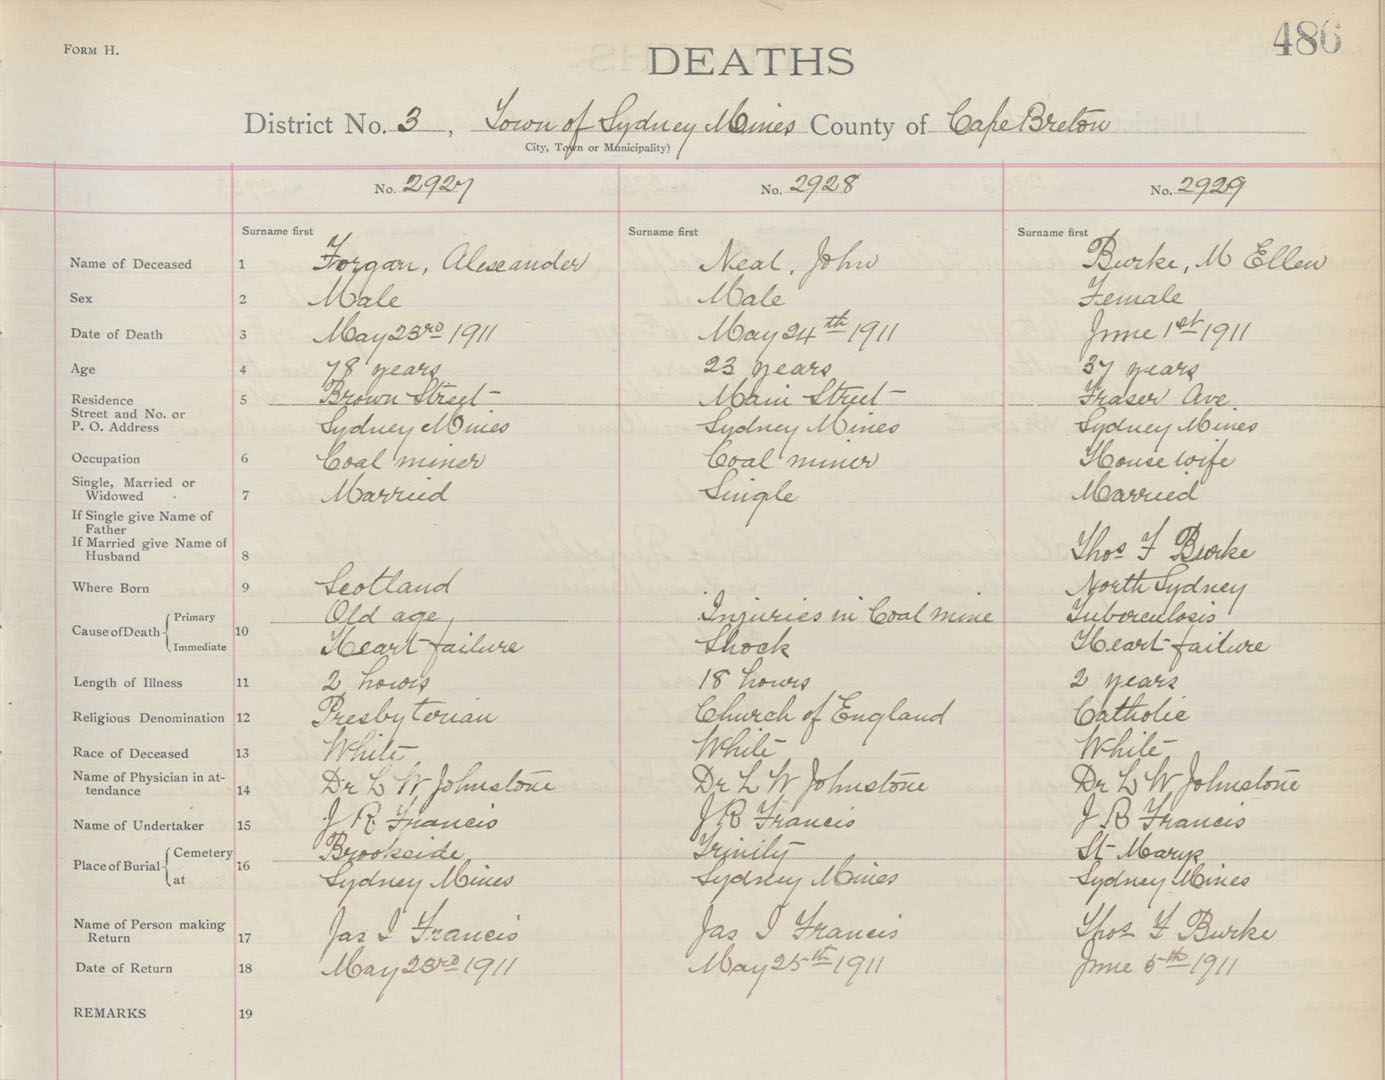 486
Form H.
DEATHS
District No. 3, Town of Sydney Mines County of Cape Breton
City, Town or Municipality)
No. 2927 No. 2928 No. 2929
Surname first Surname first Surname first
Name of Deceased 1 Forgan, Alexander Neal, John Burke, M Ellen
Sex 2 Male Male Female
Date of Death 3 May 23rd 1911 May 24th 1911 June 1st 1911
Age 4 78 years 23 years 37 years
Residence 5 Brown Street Main Street Fraser Ave.
Street and No. or
P. O. Address Sydney Mines Sydney Mines Sydney Mines
Occupation 6 Coal miner Coal miner House wife
Single, Married or
Widowed 7 Married Single Married
If Single give Name of
Father
If Married give Name of
Husband 8 Thos F Burke
Where Born 9 Scotland North Sydney
Cause of Death 10 Primary Old age, Injuries in Coal mine Tuberculosis
Immediate Heart failure Shock Heart failure
Length of Illness 11 2 hours 18 hours 2 years
Religious Denomination 12 Presbyterian Church of England Catholic
Race of Deceased 13 White White White
Name of Physician in at-
tendance 14 Dr L W Johnstone Dr L W Johnstone Dr L W Johnstone
Name of Undertaker 15 J R Francis J R Francis J R Francis
Place of Burial 16 Cemetery Brookside Trinity St Marys
at Sydney Mines Sydney Mines Sydney Mines
Name of Person making
Return 17 Jas I Francis Jas I Francis Thos F Burke
Date of Return 18 May 23rd 1911 May 25th 1911 June 5th 1911
REMARKS 19